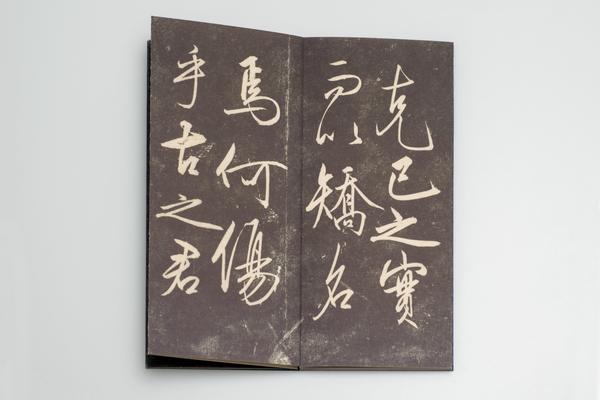 克己之實
而以矯名
焉何傷
乎古之君